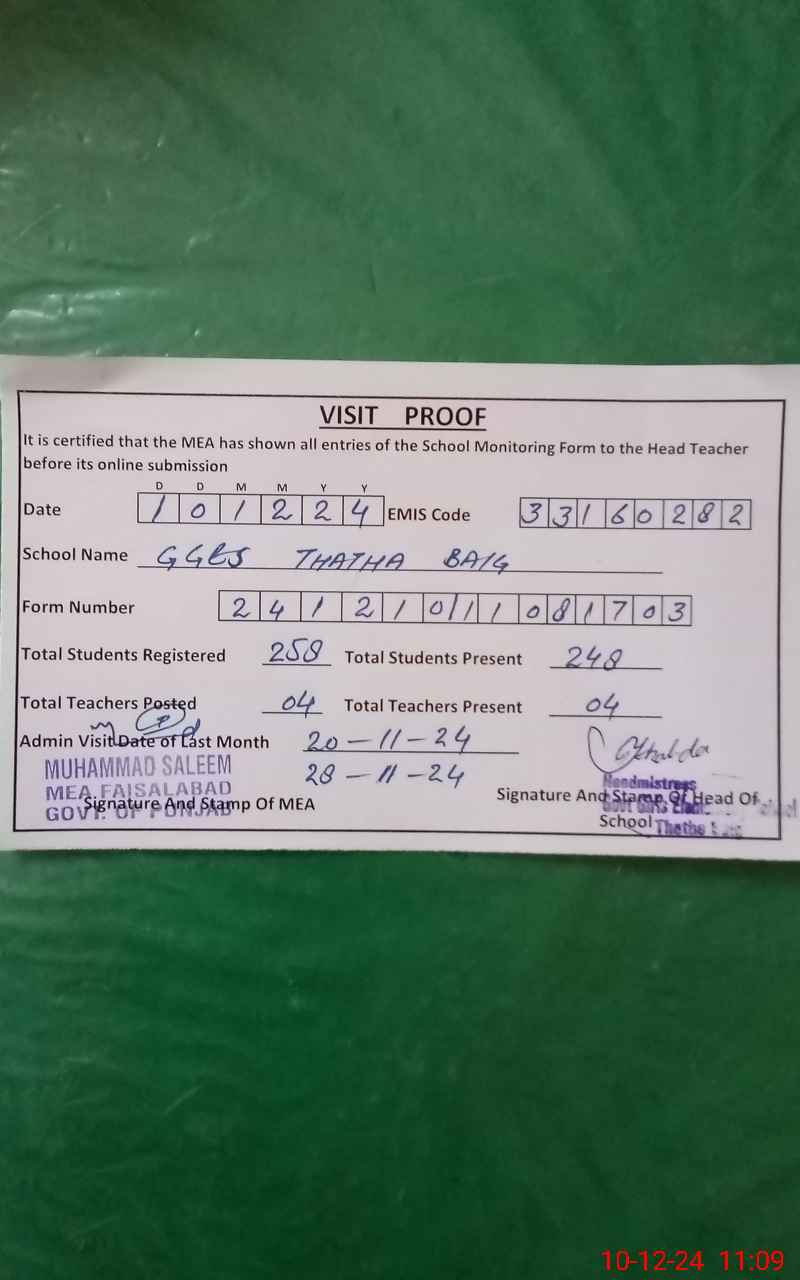 VISIT PROOF
It is certified that the MEA has shown all entries of the School Monitoring Form to the Head Teacher
before its online submission
D D M M Y Y
Date 1 0 1 2 2 4 EMIS Code 3 3 1 6 0 2 8 2
School Name GGES THATHA BAIG
Form Number 2 4 1 2 1 0 1 1 0 8 1 7 0 3
Total Students Registered 258 Total Students Present 248
Total Teachers Posted 04 Total Teachers Present 04
Admin Visit Date of Last Month 20-11-24
28-11-24
MUHAMMAD SALEEM
MEA FAISALABAD
GOVT. OF PUNJAB
Signature And Stamp Of MEA
Headmistress
Signature And Stamp Of Head Of
School
Thatha
10-12-24 11:09